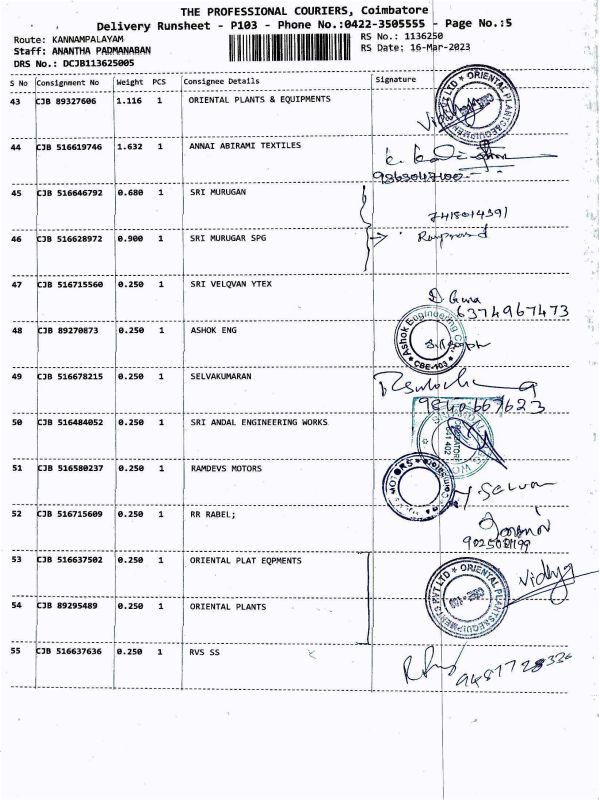 THE PROFESSIONAL COURIERS, Coimbatore
Delivery Runsheet - P103 - Phone No.:0422-3505555 - Page No.:5
Route: KANNAMPALAYAM
RS No.: 1136250
Staff: ANANTHA PADMANABAN
RS Date: 16-Mar-2023
DRS No.: DCJB113625005
S No Consignment No Weight PCS Consignee Details Signature
43 CJB 89327606 1.116 1 ORIENTAL PLANTS & EQUIPMENTS
ORIENTAL PLANTS&EQUIPMENTS PVT LTD
44 CJB 516619746 1.632 1 ANNAI ABIRAMI TEXTILES
45 CJB 516646792 0.680 1 SRI MURUGAN
7418014391
46 CJB 516628972 0.900 1 SRI MURUGAR SPG
47 CJB 516715560 0.250 1 SRI VELQVAN YTEX
6374967473
48 CJB 89270873 0.250 1 ASHOK ENG
Ashok Engineering
CBE-103
49 CJB 516678215 0.250 1 SELVAKUMARAN
9840667623
50 CJB 516484052 0.250 1 SRI ANDAL ENGINEERING WORKS
51 CJB 516580237 0.250 1 RAMDEVS MOTORS
MOTORS
Y. Selvan
52 CJB 516715609 0.250 1 RR RABEL;
53 CJB 516637502 0.250 1 ORIENTAL PLAT EQPMENTS
ORIENTAL PLANTS&EQUIPMENTS PVT LTD
Vidhya
54 CJB 89295489 0.250 1 ORIENTAL PLANTS
55 CJB 516637636 0.250 1 RVS SS